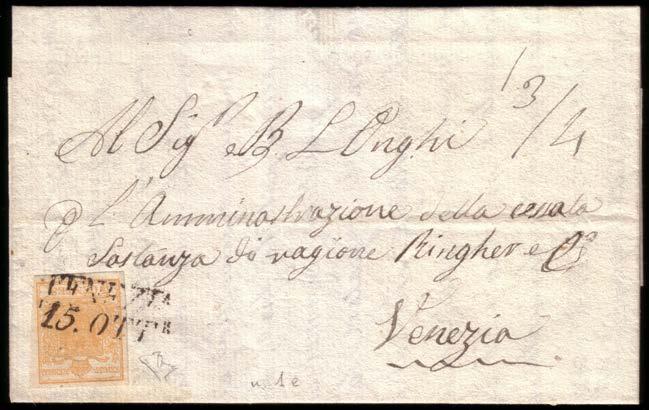 1 3/4
Al Sigr B. LOnghi
P L'Amminastrazione della cessata
Sostanza di ragione Ringher e Co
Venezia
VENEZIA
15. OTTR
n. 1e